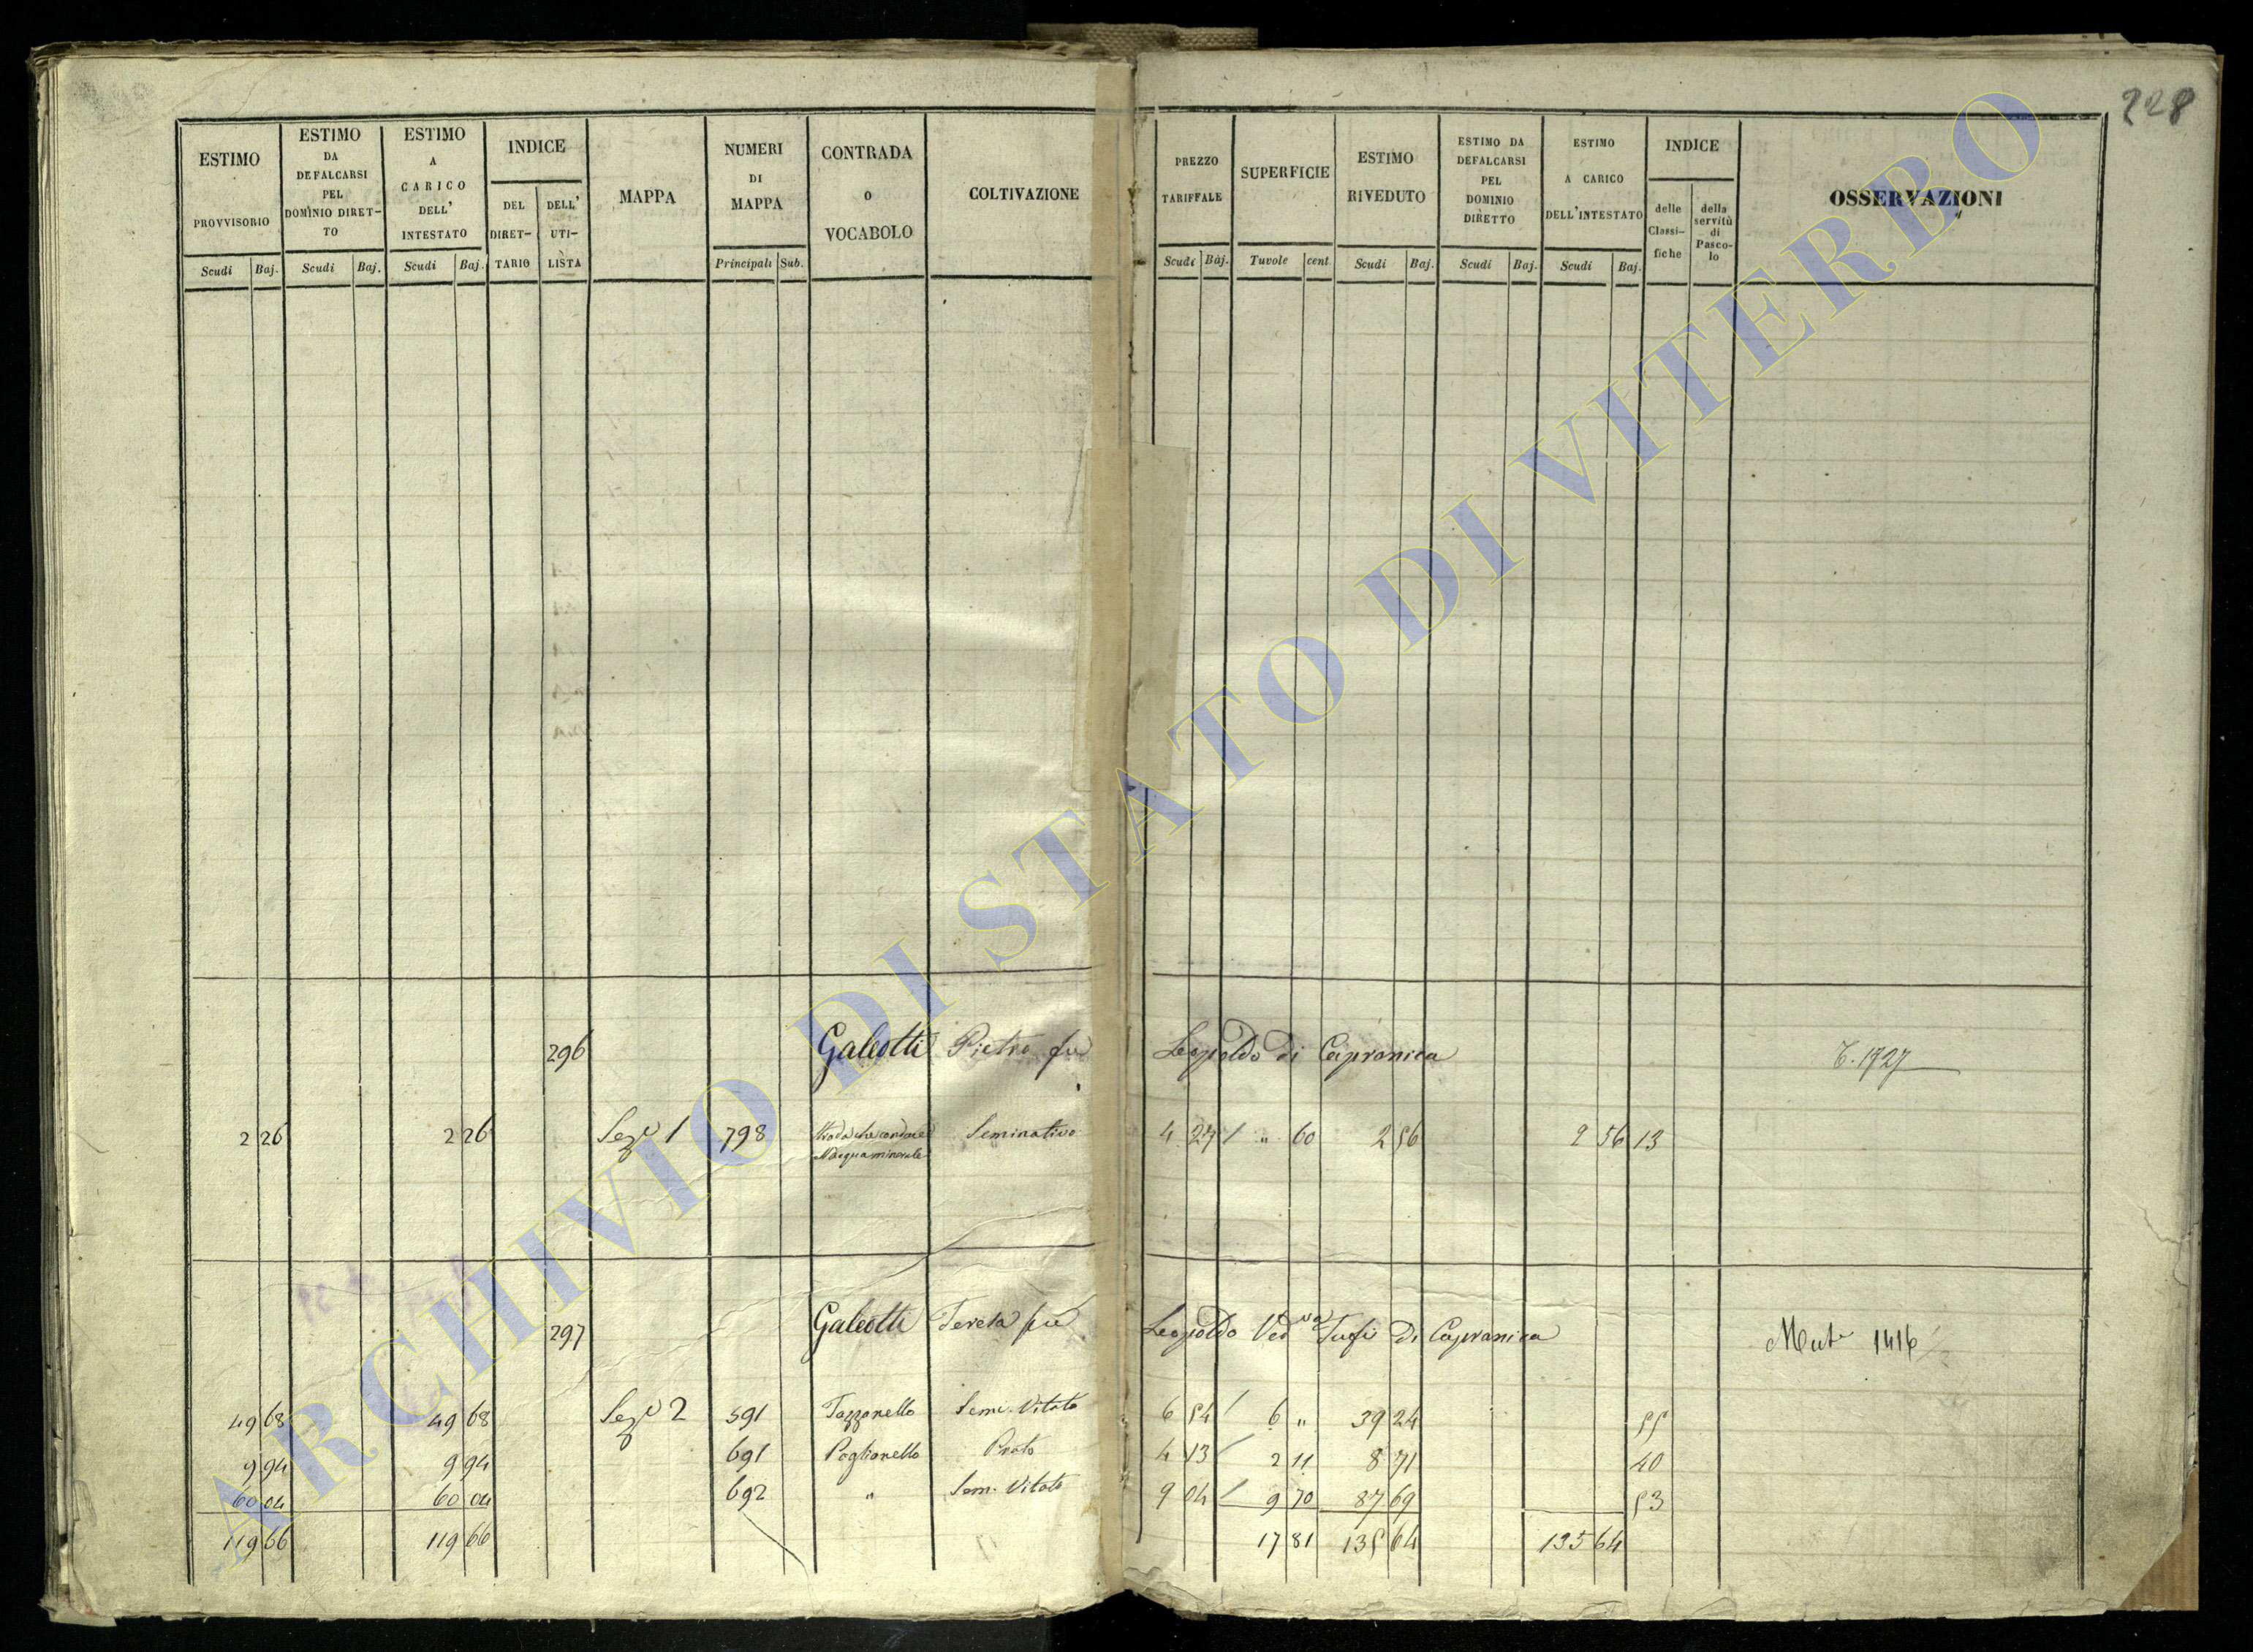 228
ESTIMO PROVVISORIO Scudi Baj.
ESTIMO DA DEFALCARSI PEL DOMINIO DIRET- TO Scudi Baj.
ESTIMO A CARICO DELL' INTESTATO Scudi Baj.
INDICE DEL DIRET- TARIO DELL' UTI- LISTA
MAPPA
NUMERI DI MAPPA Principali Sub.
CONTRADA O VOCABOLO
COLTIVAZIONE
PREZZO TARIFFALE Scudi Baj.
SUPERFICIE Tavole cent
ESTIMO RIVEDUTO Scudi Baj.
ESTIMO DA DEFALCARSI PEL DOMINIO DIRETTO Scudi Baj.
ESTIMO A CARICO DELL'INTESTATO Scudi Baj.
INDICE delle Classi- fiche della servitù di Pasco- lo
OSSERVAZIONI
296 Galeotti Pietro fu Leopoldo di Capranica 1727
2 26 2 26 Sez. 1 798 Strada che conduce Seminativo 4 27 / " 60 2 56 2 56 13
all'acqua minerale
297 Galeotti Teresa fu Leopoldo Ved va Tufi di Capranica Mut. 1416
49 68 49 68 Sez. 2 591 Tazzanello Sem. Vitato 6 54 / 6 " 39 24 55
9 94 9 94 691 Poglianello Prato 4 13 / 2 11 8 71 40
60 04 60 04 692 " Sem. Vitato 9 04 / 9 70 87 69 53
119 66 119 66 17 81 135 64 135 64
ARCHIVIO DI STATO DI VITERBO